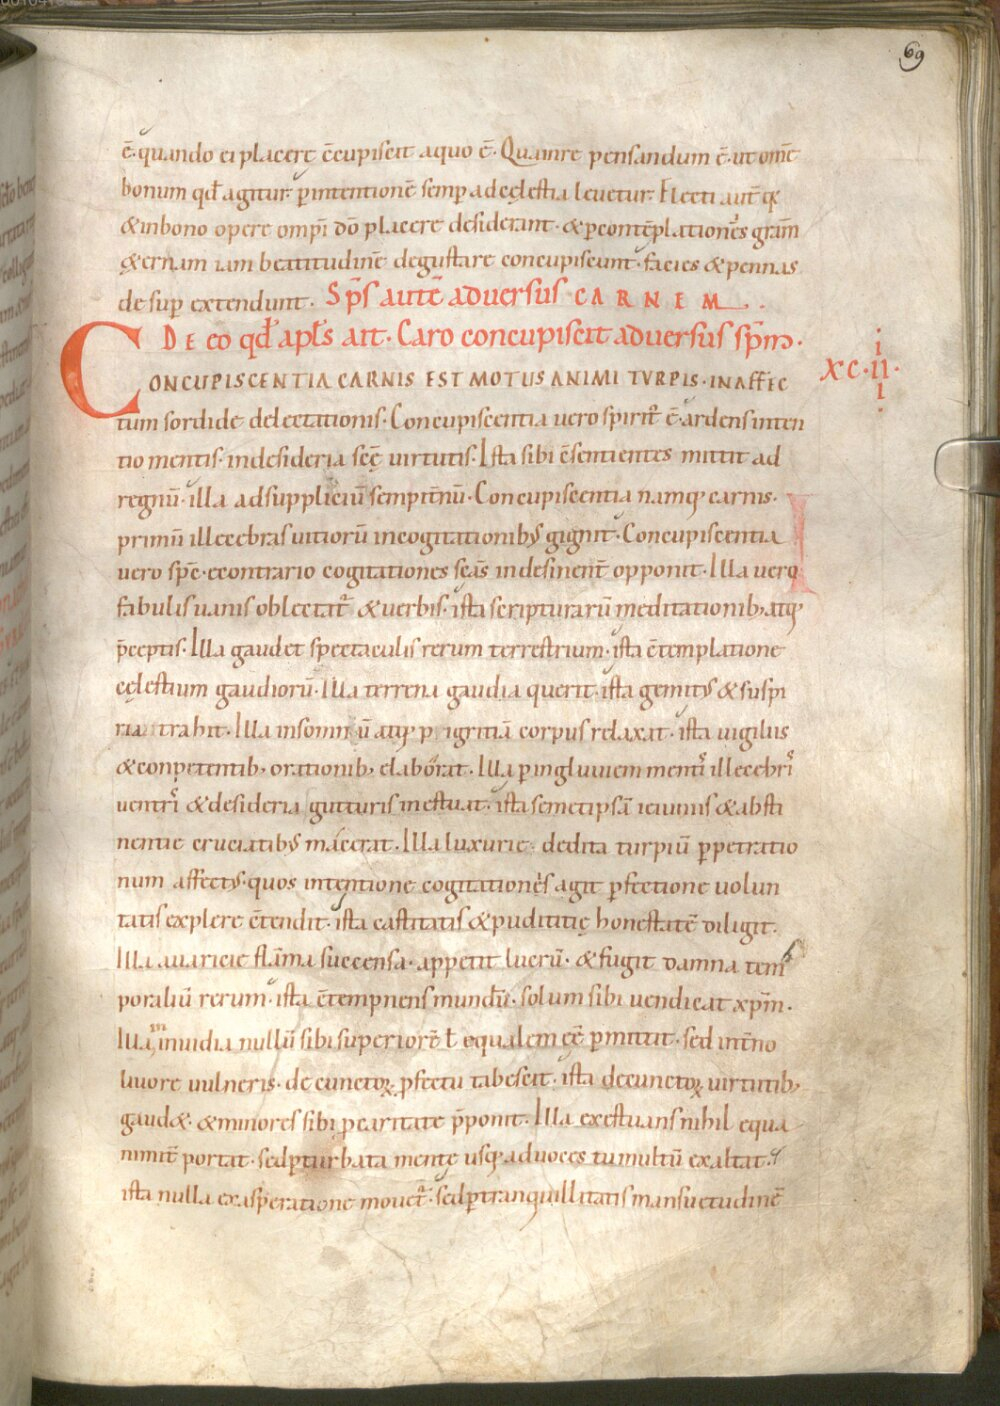 69
ē· quando ei placere c̄cupiscit aquo ē· Quamre pensandum ē· ut om̄e
bonum qđ agitur p̱intentionē semp̱ adecęlestia levetur· Electi aut̄ q̇
&inbono opere omp̄i d̄o placere desiderant· &p̱contēplationes gram̄
&ernam iam beatitudinē degustare concupiscunt· facies &pennas
desup̱ extendunt· Sp̄s autē adversus CARNEM
DE eo qđ apl̄s ait· Caro concupiscit adversus sp̄m·
XC·III·I·
CONCUPISCENTIA CARNIS EST MOTUS ANIMI TVRPIS· INAFFEC
tum sordide delectationis· Concupiscentia vero spirit᷒ ē· ardens inten
tio mentis· indesideria sc̄ę virtutis· Ista sibi c̄sentientes mittit ad
regnū· illa adsuppliciū sempit̄nū· Concupiscentia namq; carnis·
primū illecebras uitiorū incogitationib; gignit· Concupiscentia
vero sp̄c· econtrario cogitationes sc̄as indesinent̄ opponit· Illa vero
fabulis uanis oblectat᷒ &verbis· ista scripturarū meditationib; atq;
p̄ceptis· Illa gaudet spectaculis rerum terrestrium· ista c̄templatione
cęlestium gaudiorū· Illa terrena gaudia querit· ista gemit; & suspi
ria trahit· Illa insomniū atq; pigritiā corpus relaxat· ista vigiliis
&conpetentib; orationib; elaborat· Illa p̱ingluviem menti᷒ illecebri᷒
ventri᷒ &desideria gutturis inestuat· ista semetipsā ieiuniis &absti
nentie cruciatib; macerat· Illa luxurie dedita turpiū p̱petratio
num affect;· quos intentione cogitationes agit p̱fectione uolun
tatis explere c̄tendit· ista castitatis &pudititię honestatē diligit·
Illa avaricie flāma succensa· appetit lucrū· &fugit damna tem
poraliū rerum· ista c̄tempnens mundū· solum sibi vendicat xp̄m·
Illa invidia nullū sibi superiorē ł equalem eē p̱mittit· sed int̄no
livore vulneris· de cunctoꝝ p̱fectu tabescit· ista decunctoꝝ virtutib;
gaud&· &minores sibi p̱caritate p̄ponit· Illa exestuans nihil equa
nimit̄ portat· sed p̱turbata mente usq; ad voces tumultū exaltat·
ista nulla exasp̱eratione movet᷒· sed p̱tranquillitatis mansuetudinē